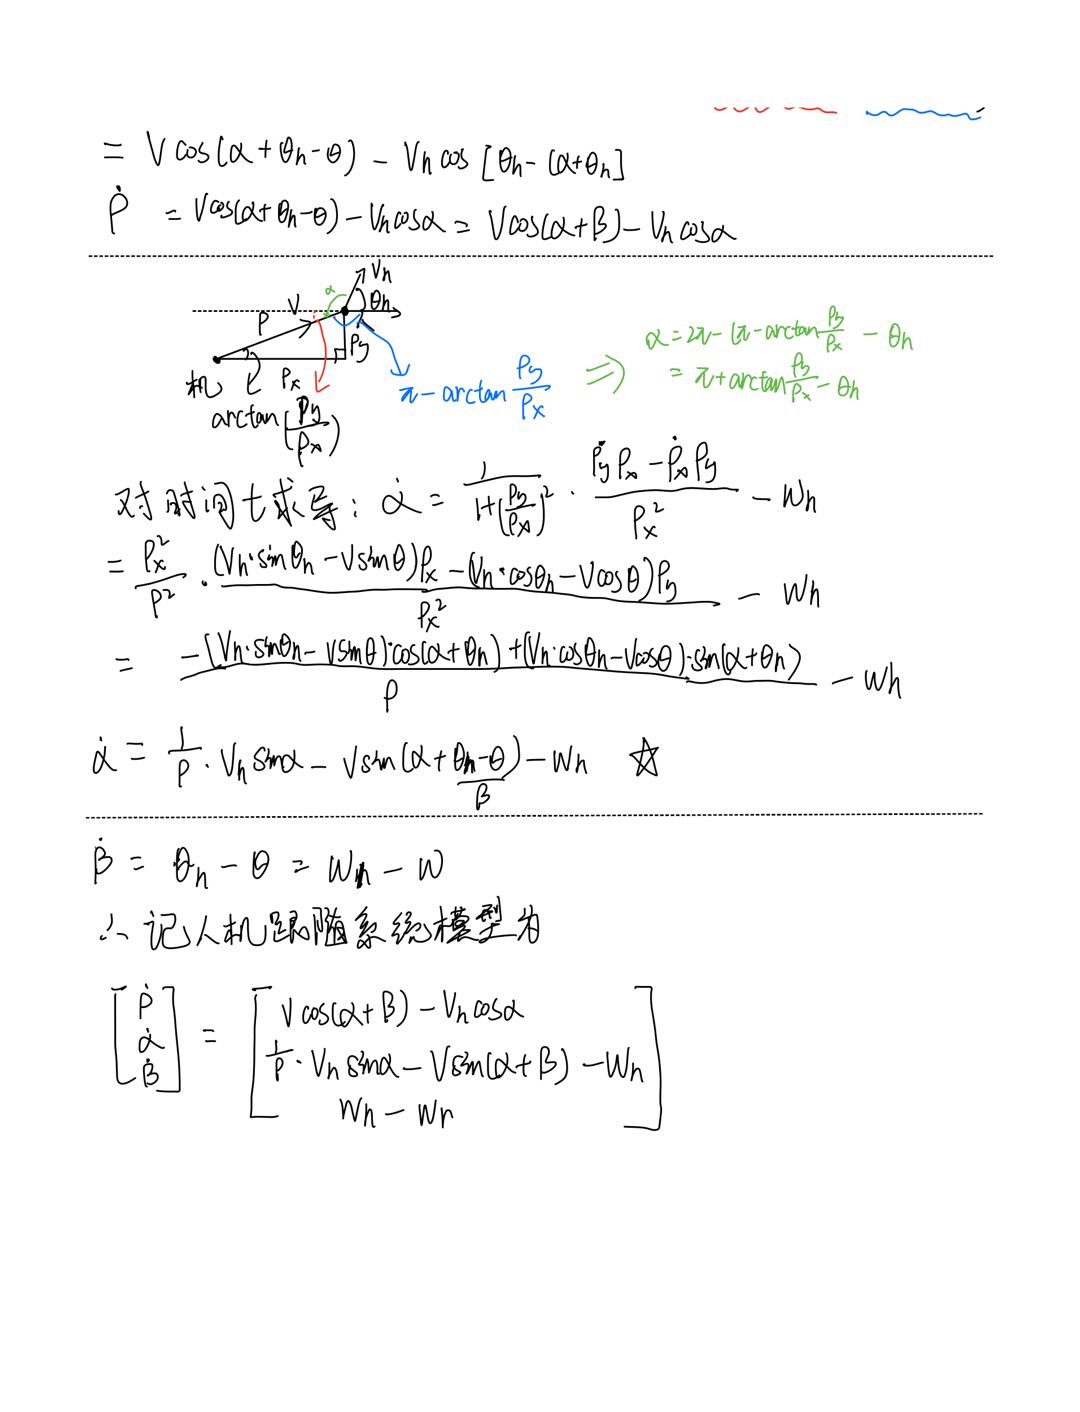 = V cos(α + θh - θ) - Vh cos [θh - (α+θh]
Ṗ = Vcos(α+θh-θ) - Vh cosα = Vcos(α+β) - Vh cosα
Vh
α
θh
V
P
Py
机
Px
arctan(Py/Px)
π - arctan Py/Px
⇒
α = 2π - (π - arctan Py/Px - θh
= π + arctan Py/Px - θh
对时间t求导: α̇ = 1/(1+(Py/Px)²) · (ṖyPx - ṖxPy)/Px² - Wh
= Px²/P² · ((Vh·sinθh - Vsinθ)Px - (Vh·cosθh - Vcosθ)Py)/Px² - Wh
= (-(Vh·sinθh - Vsinθ)·cos(α+θh) + (Vh·cosθh - Vcosθ)·sin(α+θh))/P - Wh
α̇ = 1/P · Vh sinα - Vsin(α + θh-θ) - Wh ☆
β
β̇ = θh - θ = Wh - W
∴ 记人机跟随系统模型为
Ṗ = Vcos(α+β) - Vh cosα
α̇ 1/P · Vh sinα - Vsin(α+β) - Wh
β̇ Wh - Wr